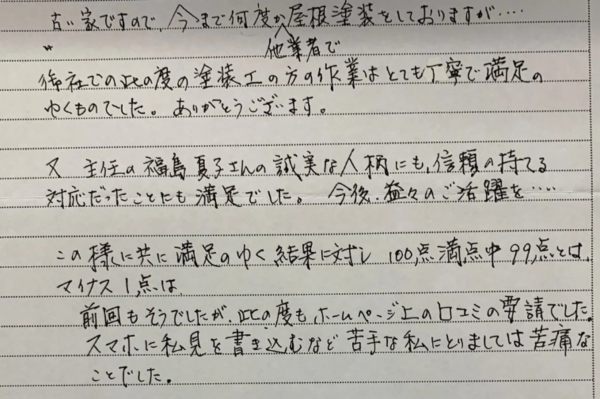 古い家ですので、今まで何度か屋根塗装をしておりますが‥‥
〃
他業者で
御社での此の度の塗装工の方の作業はとても丁寧で満足の
ゆくものでした。ありがとうございます。
又 主任の福島夏子さんの誠実な人柄にも、信頼の持てる
対応だったことにも満足でした。今後、益々のご活躍を‥‥
この様に共に満足のゆく結果に対し 100点満点中99点とは、
マイナス1点は
前回もそうでしたが、此の度も、ホームページ上の口コミの要請でした。
スマホに私見を書き込むなど苦手な私にとりましては苦痛な
ことでした。